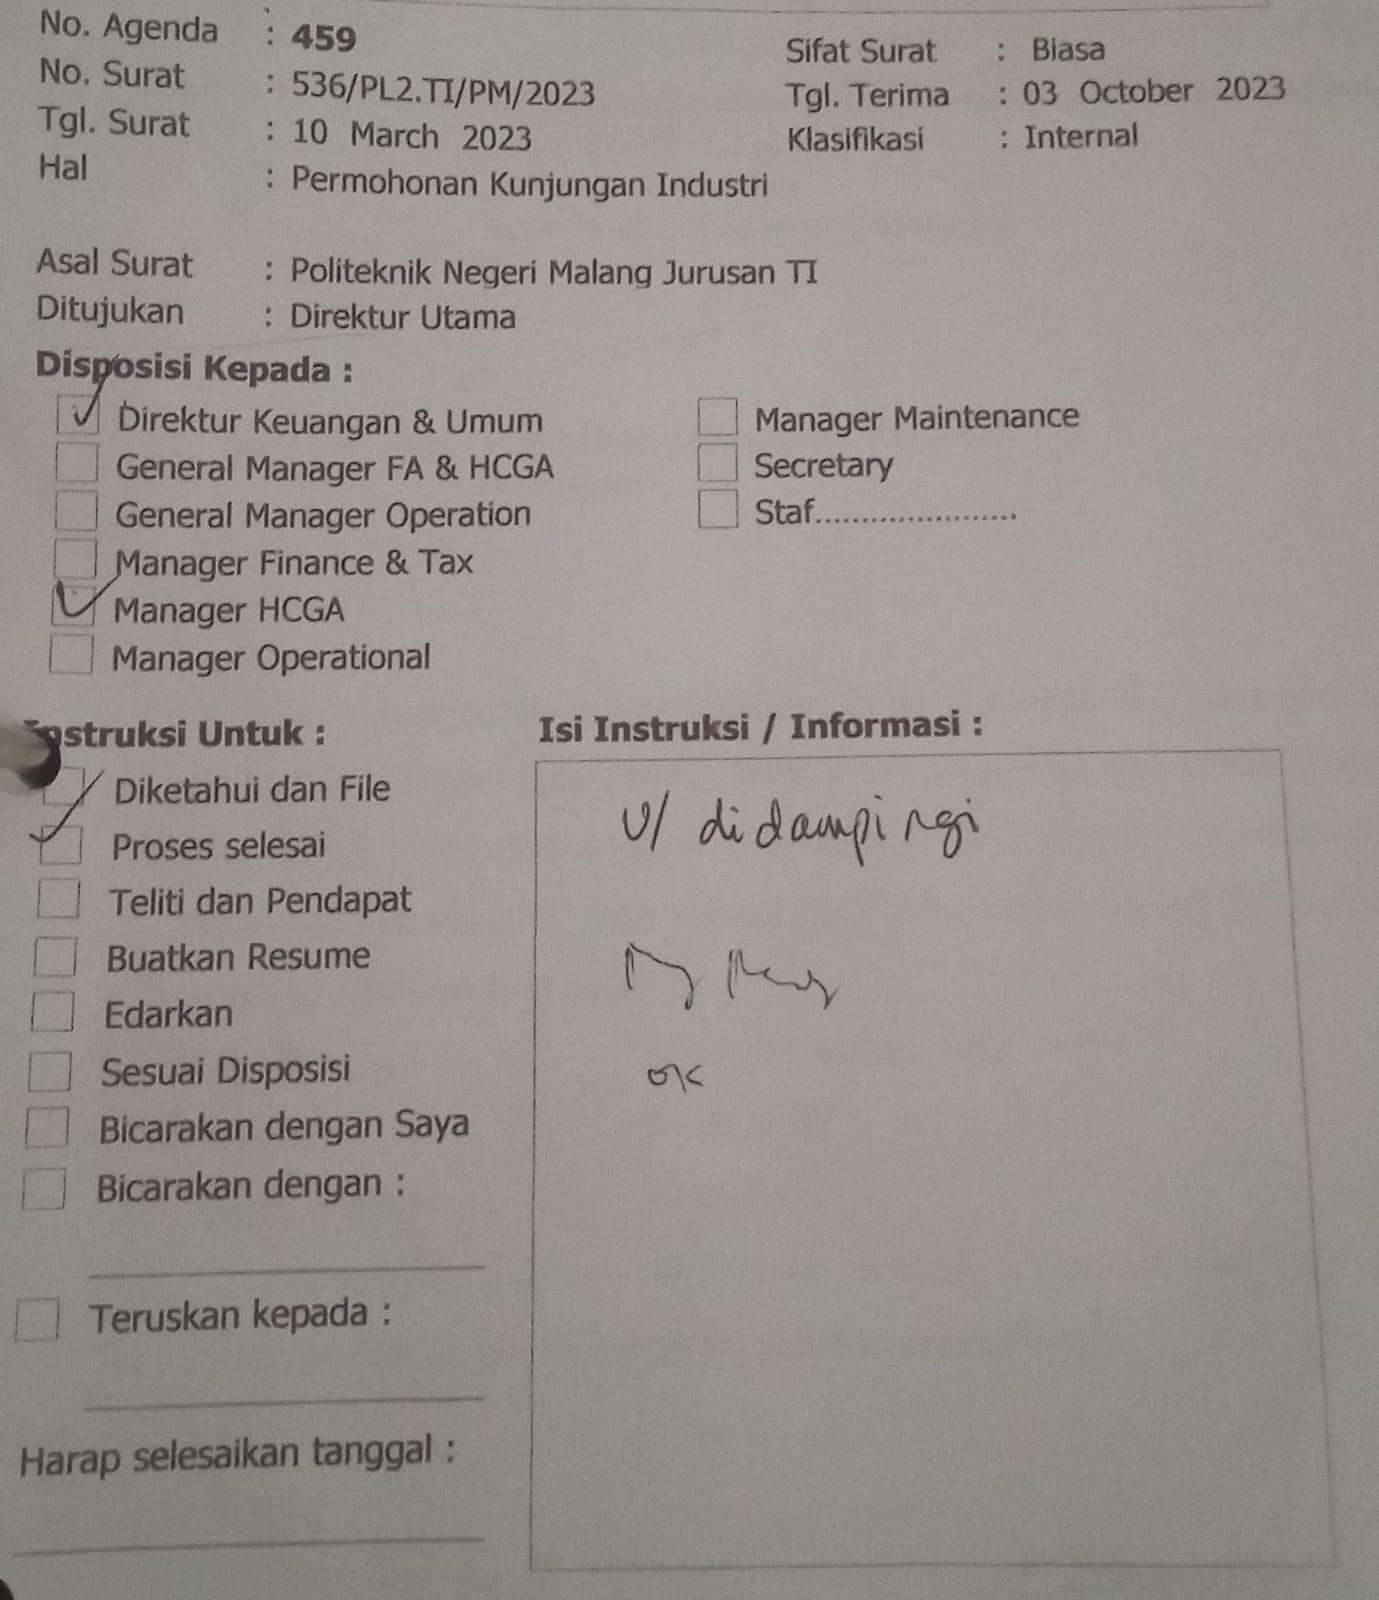 No. Agenda : 459
No. Surat : 536/PL2.TI/PM/2023
Tgl. Surat : 10 March 2023
Hal : Permohonan Kunjungan Industri
Sifat Surat : Biasa
Tgl. Terima : 03 October 2023
Klasifikasi : Internal
Asal Surat : Politeknik Negeri Malang Jurusan TI
Ditujukan : Direktur Utama
Disposisi Kepada :
Direktur Keuangan & Umum
General Manager FA & HCGA
General Manager Operation
Manager Finance & Tax
Manager HCGA
Manager Operational
Manager Maintenance
Secretary
Staf......................
Instruksi Untuk :
Diketahui dan File
Proses selesai
Teliti dan Pendapat
Buatkan Resume
Edarkan
Sesuai Disposisi
Bicarakan dengan Saya
Bicarakan dengan :
Teruskan kepada :
Harap selesaikan tanggal :
Isi Instruksi / Informasi :
U/ didampingi
ok